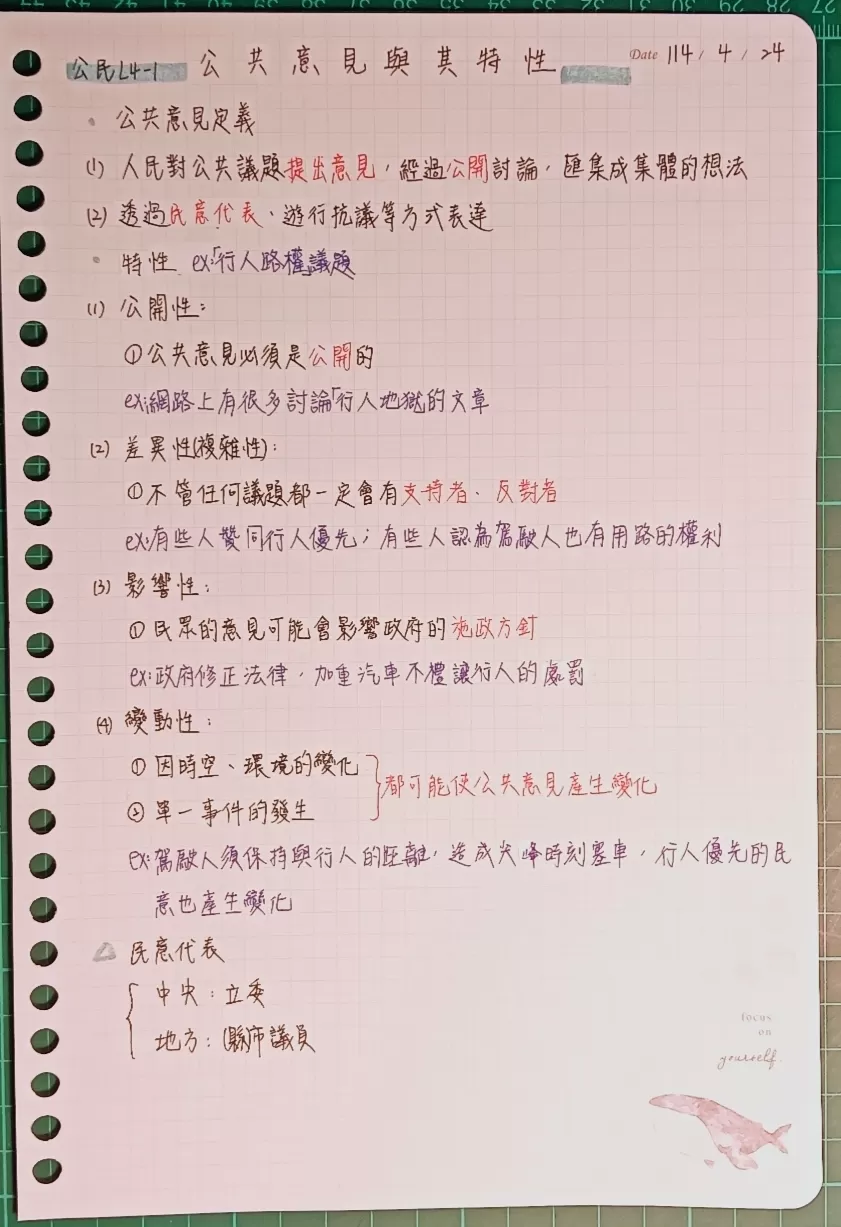 公民L4-1 公共意見與其特性 Date 114 / 4 / 24
• 公共意見定義
(1) 人民對公共議題提出意見,經過公開討論,匯集成集體的想法
(2) 透過民意代表、遊行抗議等方式表達
• 特性 ex:「行人路權」議題
(1) 公開性:
①公共意見必須是公開的
ex:網路上有很多討論「行人地獄」的文章
(2) 差異性(複雜性):
①不管任何議題都一定會有支持者、反對者
ex:有些人贊同行人優先;有些人認為駕駛人也有用路的權利
(3) 影響性:
① 民眾的意見可能會影響政府的施政方針
ex:政府修正法律,加重汽車不禮讓行人的處罰
(4) 變動性:
① 因時空、環境的變化
② 單一事件的發生
都可能使公共意見產生變化
ex:駕駛人須保持與行人的距離,造成尖峰時刻塞車,行人優先的民
意也產生變化
△ 民意代表
中央:立委
地方:(縣)市議員
focus
on
yourself.
44 43 42 41 40 39 38 37 36 35 34 33 32 31 30 29 28 27